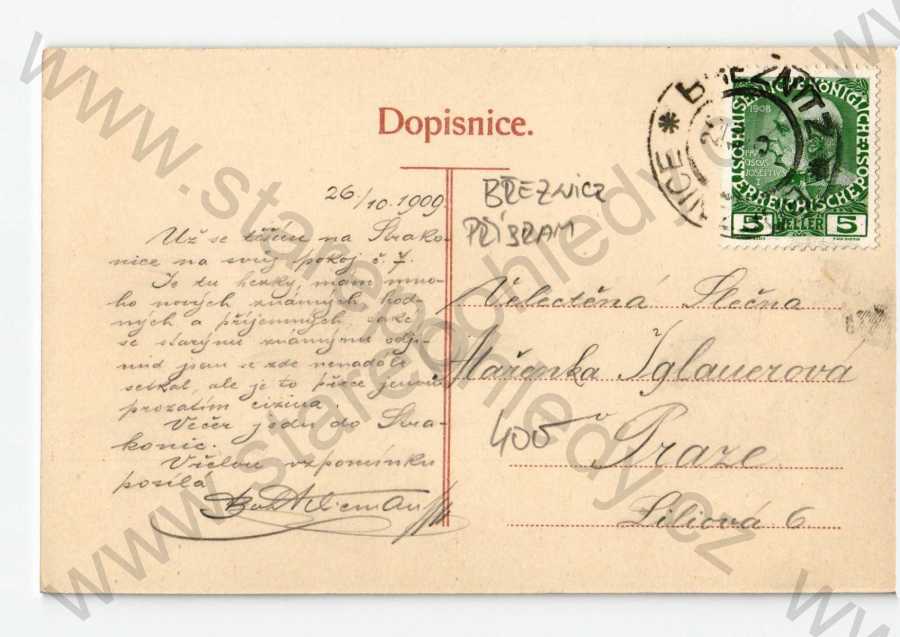 Dopisnice.
26./10. 1909
Už se těším na Strako-
nice na svůj pokoj č. 7.
Je tu hezky mám mno-
ho nových známých hod-
ných a příjemných,
se starými známými
jsem se zde nenadále
setkal, ale je to přece jenom
prozatím cizina.
Večer jedu do Stra-
konic.
Vřelou vzpomínku
posílá
BŘEZNICE
PŘÍBRAM
Velectěná Slečna
Mařenka Iglauerová
400
v Praze
Liliová 6
BŘEZNITZ
1908
KAISERLICHE KÖNIGLICHE
ÖSTERREICHISCHE POST
5 HELLER 5
www.starepohledy.cz